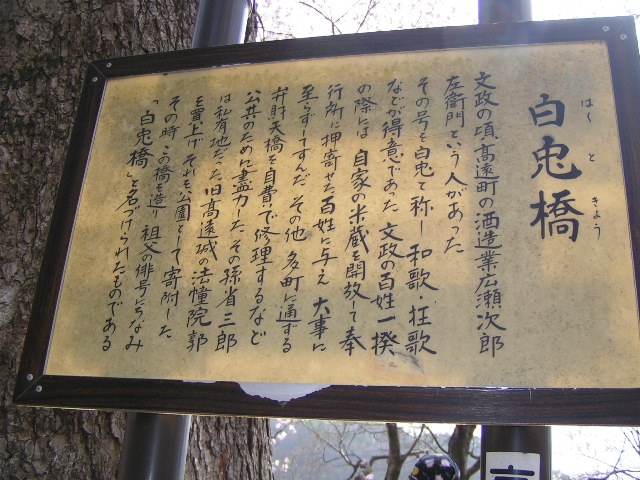 白兎橋
はくときょう
文政の頃、高遠町の酒造業広瀬次郎
左衛門という人があった
その号を白兎と称し和歌・狂歌
などが得意であった 文政の百姓一揆
の際には 自家の米蔵を開放して奉
行所に押寄せた百姓に与え 大事に
至らずしてすんだ その他 多町に通ずる
弁財天橋を自費で修理するなど
公共のために盡力した その孫省三郎
は私有地だった旧高遠城の法幢院郭
を買上げ それを公園として寄附した
その時 この橋を造り 祖父の俳号にちなみ
「白兎橋」と名づけられたものである